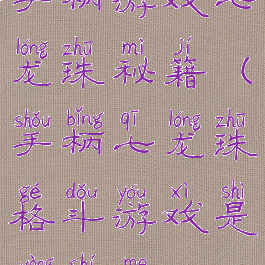 手柄游戏七
lóng zhū mì jí
龙珠秘籍（
shǒu bǐng qī lóng zhū
手柄七龙珠
gé dǒu yóu xì shì
格斗游戏是